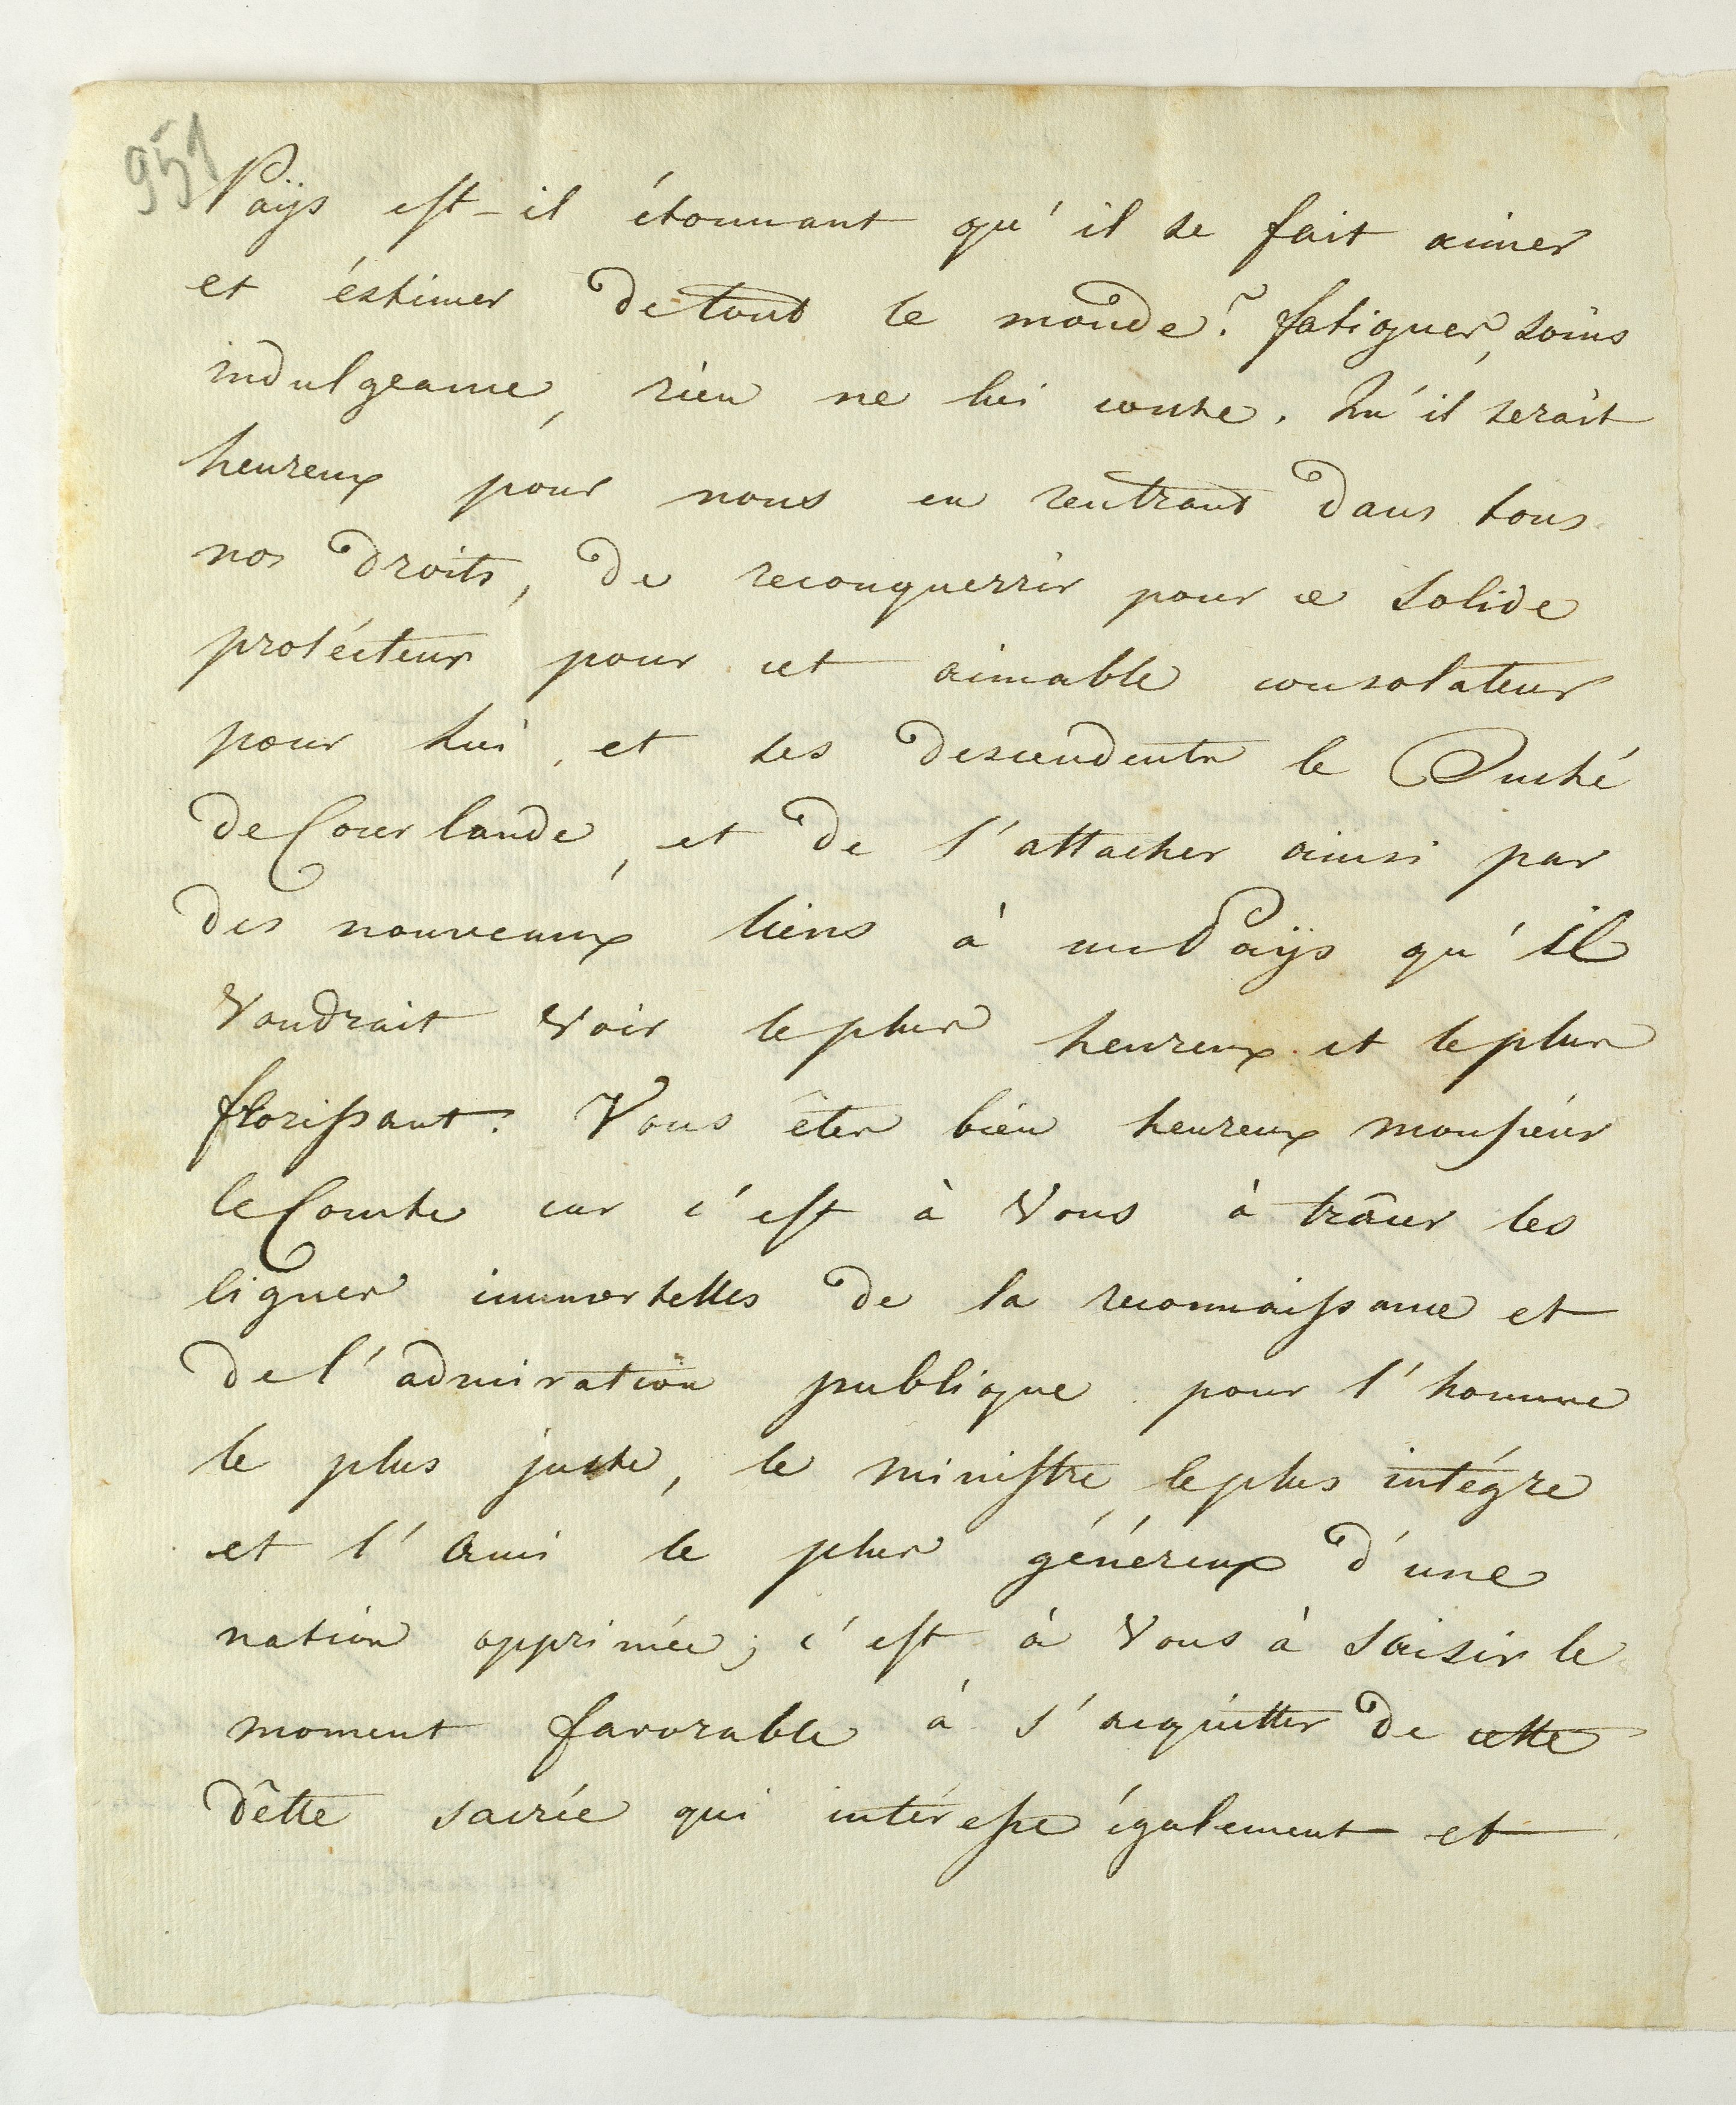 951
Païjs est-il étonnant qu'il se fait aimer
et éstimer de tout le monde? fatigues, soins
indulgeance, rien ne lui couste. Qu'il seroit
heureux pour nous en rentrant dans tous
nos droits, de reconquerrir pour ce solide
protécteur pour cet aimable consolateur
pour lui, et ses descendents le Duché
de Courlande, et de l'attacher ainsi par
des nouveaux liens à un Païjs qu'il
voudrait voir le plus heureux et le plus
florissant? Vous êtes bien heureux monsieur
le Comte car c'est à Vous à trâcer les
lignes immortelles de la reconnaissance et
de l'admiration publique pour l'homme
le plus juste, le ministre le plus intégre
et l'ami le plus généreux d'une
nation opprimée; c'est à Vous à saisir le
moment favorable à s'acquitter de cette
dêtte sacrée qui intéresse également et